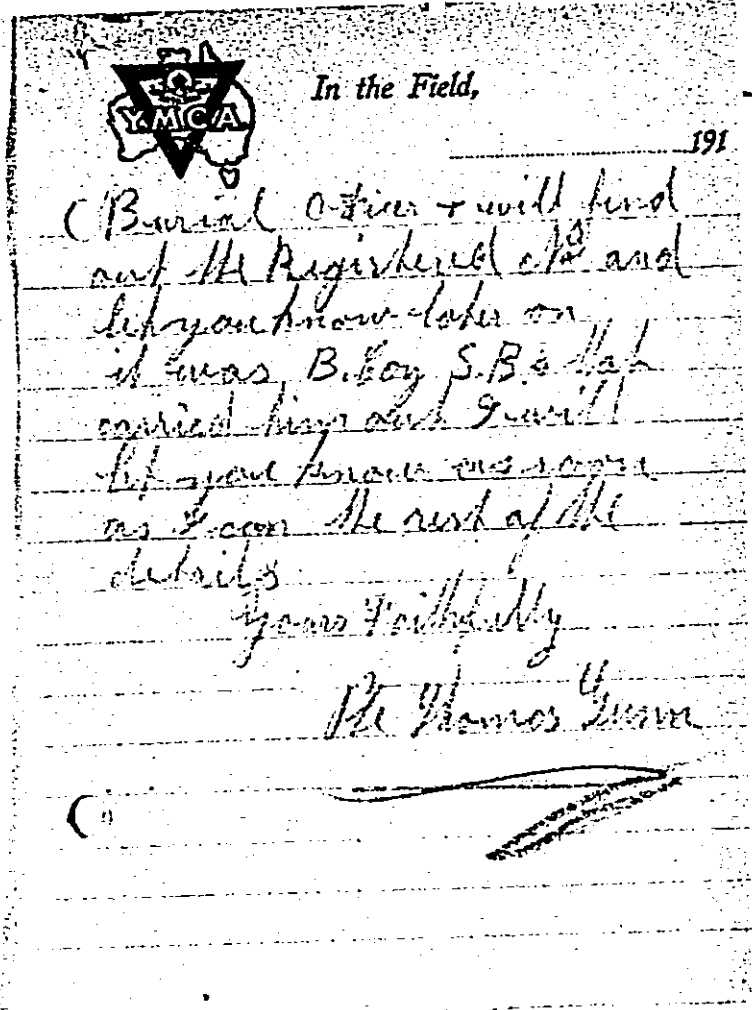 Y.M.C.A.
In the Field,
191
Burial Officer & will find
out the Registered No and
let you know later on
it was B. Coy S.B.s that
carried him out I will
let you know as soon
as I can the rest of the
details
Yours Faithfully
Pte Thomas Gunn